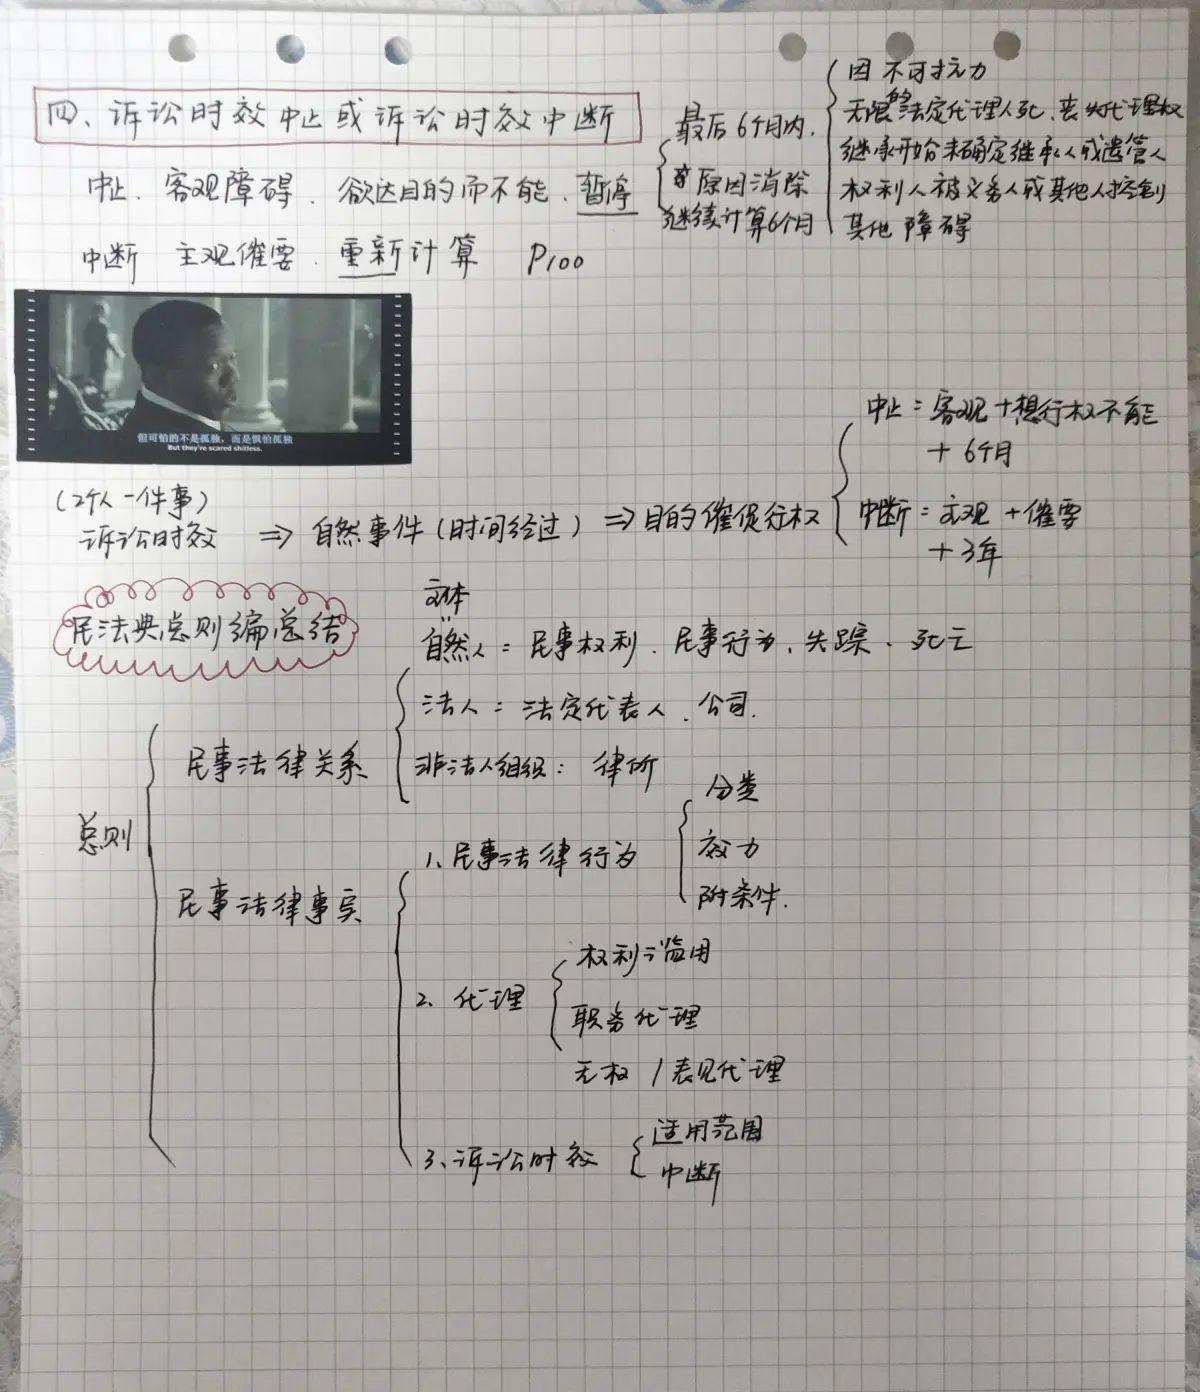 四、诉讼时效中止或诉讼时效中断
中止.客观障碍.欲达目的而不能.暂停
最后6个月内.
原因消除
继续计算6个月
因不可抗力
无限的法定代理人死、丧失代理权
继承开始未确定继承人或遗管人
权利人被义务人或其他人控制
其他障碍
中断 主观催要.重新计算 P100
但可怕的不是孤独,而是惧怕孤独
But they're scared shitless.
(2个人一件事)
诉讼时效 => 自然事件(时间经过) => 目的催促行权
中止=客观+想行权不能
+6个月
中断=主观+催要
+3年
民法典总则编总结
总则
民事法律关系
主体
自然人=民事权利.民事行为、失踪、死亡
法人=法定代表人.公司.
非法人组织:律所
民事法律事实
1、民事法律行为
分类
效力
附条件.
2、代理
权利滥用
职务代理
无权/表见代理
3、诉讼时效
适用范围
中断